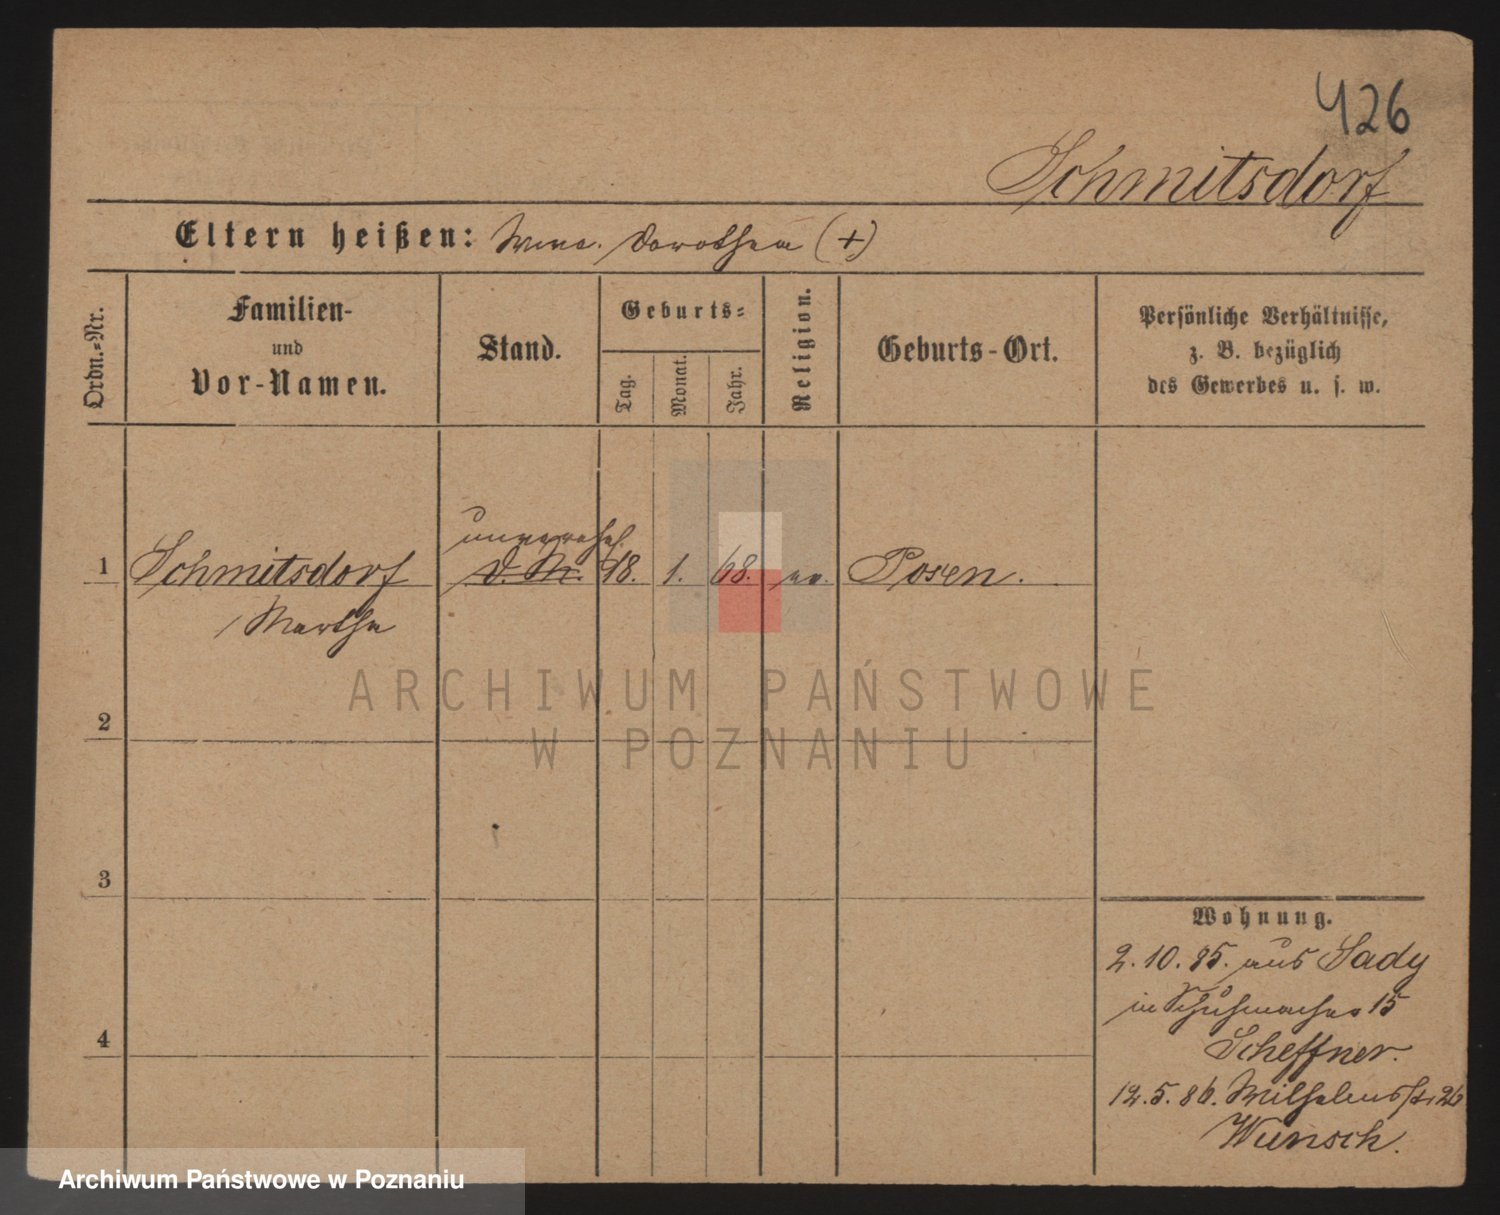 426
Schmitsdorf
Eltern heißen: Dorothea (+)
Ordn.=Nr.
Familien-
und
Vor-Namen.
Stand.
Geburts=
Tag.
Monat.
Jahr.
Religion.
Geburts-Ort.
Persönliche Verhältnisse,
z. B. bezüglich
des Gewerbes u. s. w.
unverehel.
1 Schmitsdorf 18. 1. 68. ev. Posen.
Martha
ARCHIWUM PAŃSTWOWE
W POZNANIU
2
3
4
Wohnung.
2.10.85. aus Sady
in Schuhmacher 15
Scheffner.
12.5.86. Wilhelmstr 26
Wunsch.
Archiwum Państwowe w Poznaniu